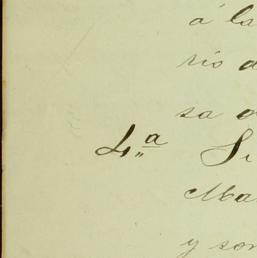 á la
rio d
sa o
4ª Si
Ma
y son